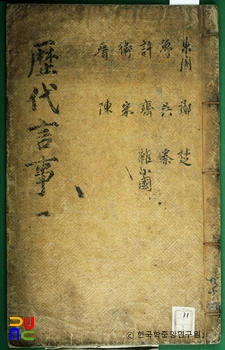 東周 鄭 楚
魯 吳 秦
許 齊 雜小國
衛 宋
晉 陳
歷代言事 一
11
ⓒ 한국학중앙연구원